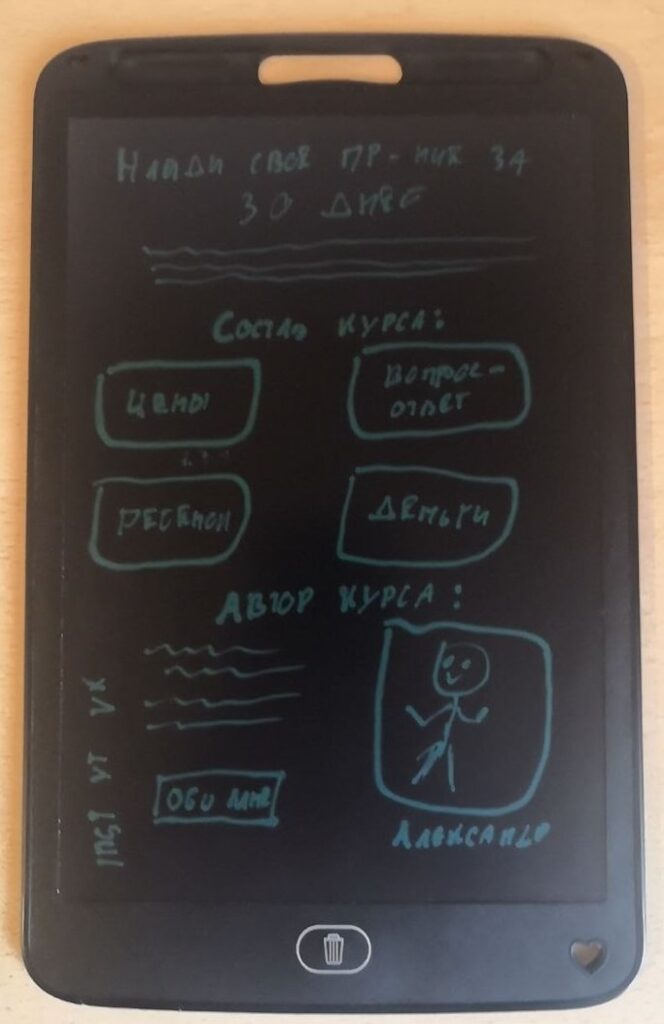 НАЙДИ СВОЕ ПР-НИЕ ЗА
30 ДНЕЙ
СОСТАВ КУРСА:
ЦЕНЫ
ВОПРОС-
ОТВЕТ
ДЕНЬГИ
АВТОР КУРСА:
INST YT VK
ОБО МНЕ
АЛЕКСАНДР